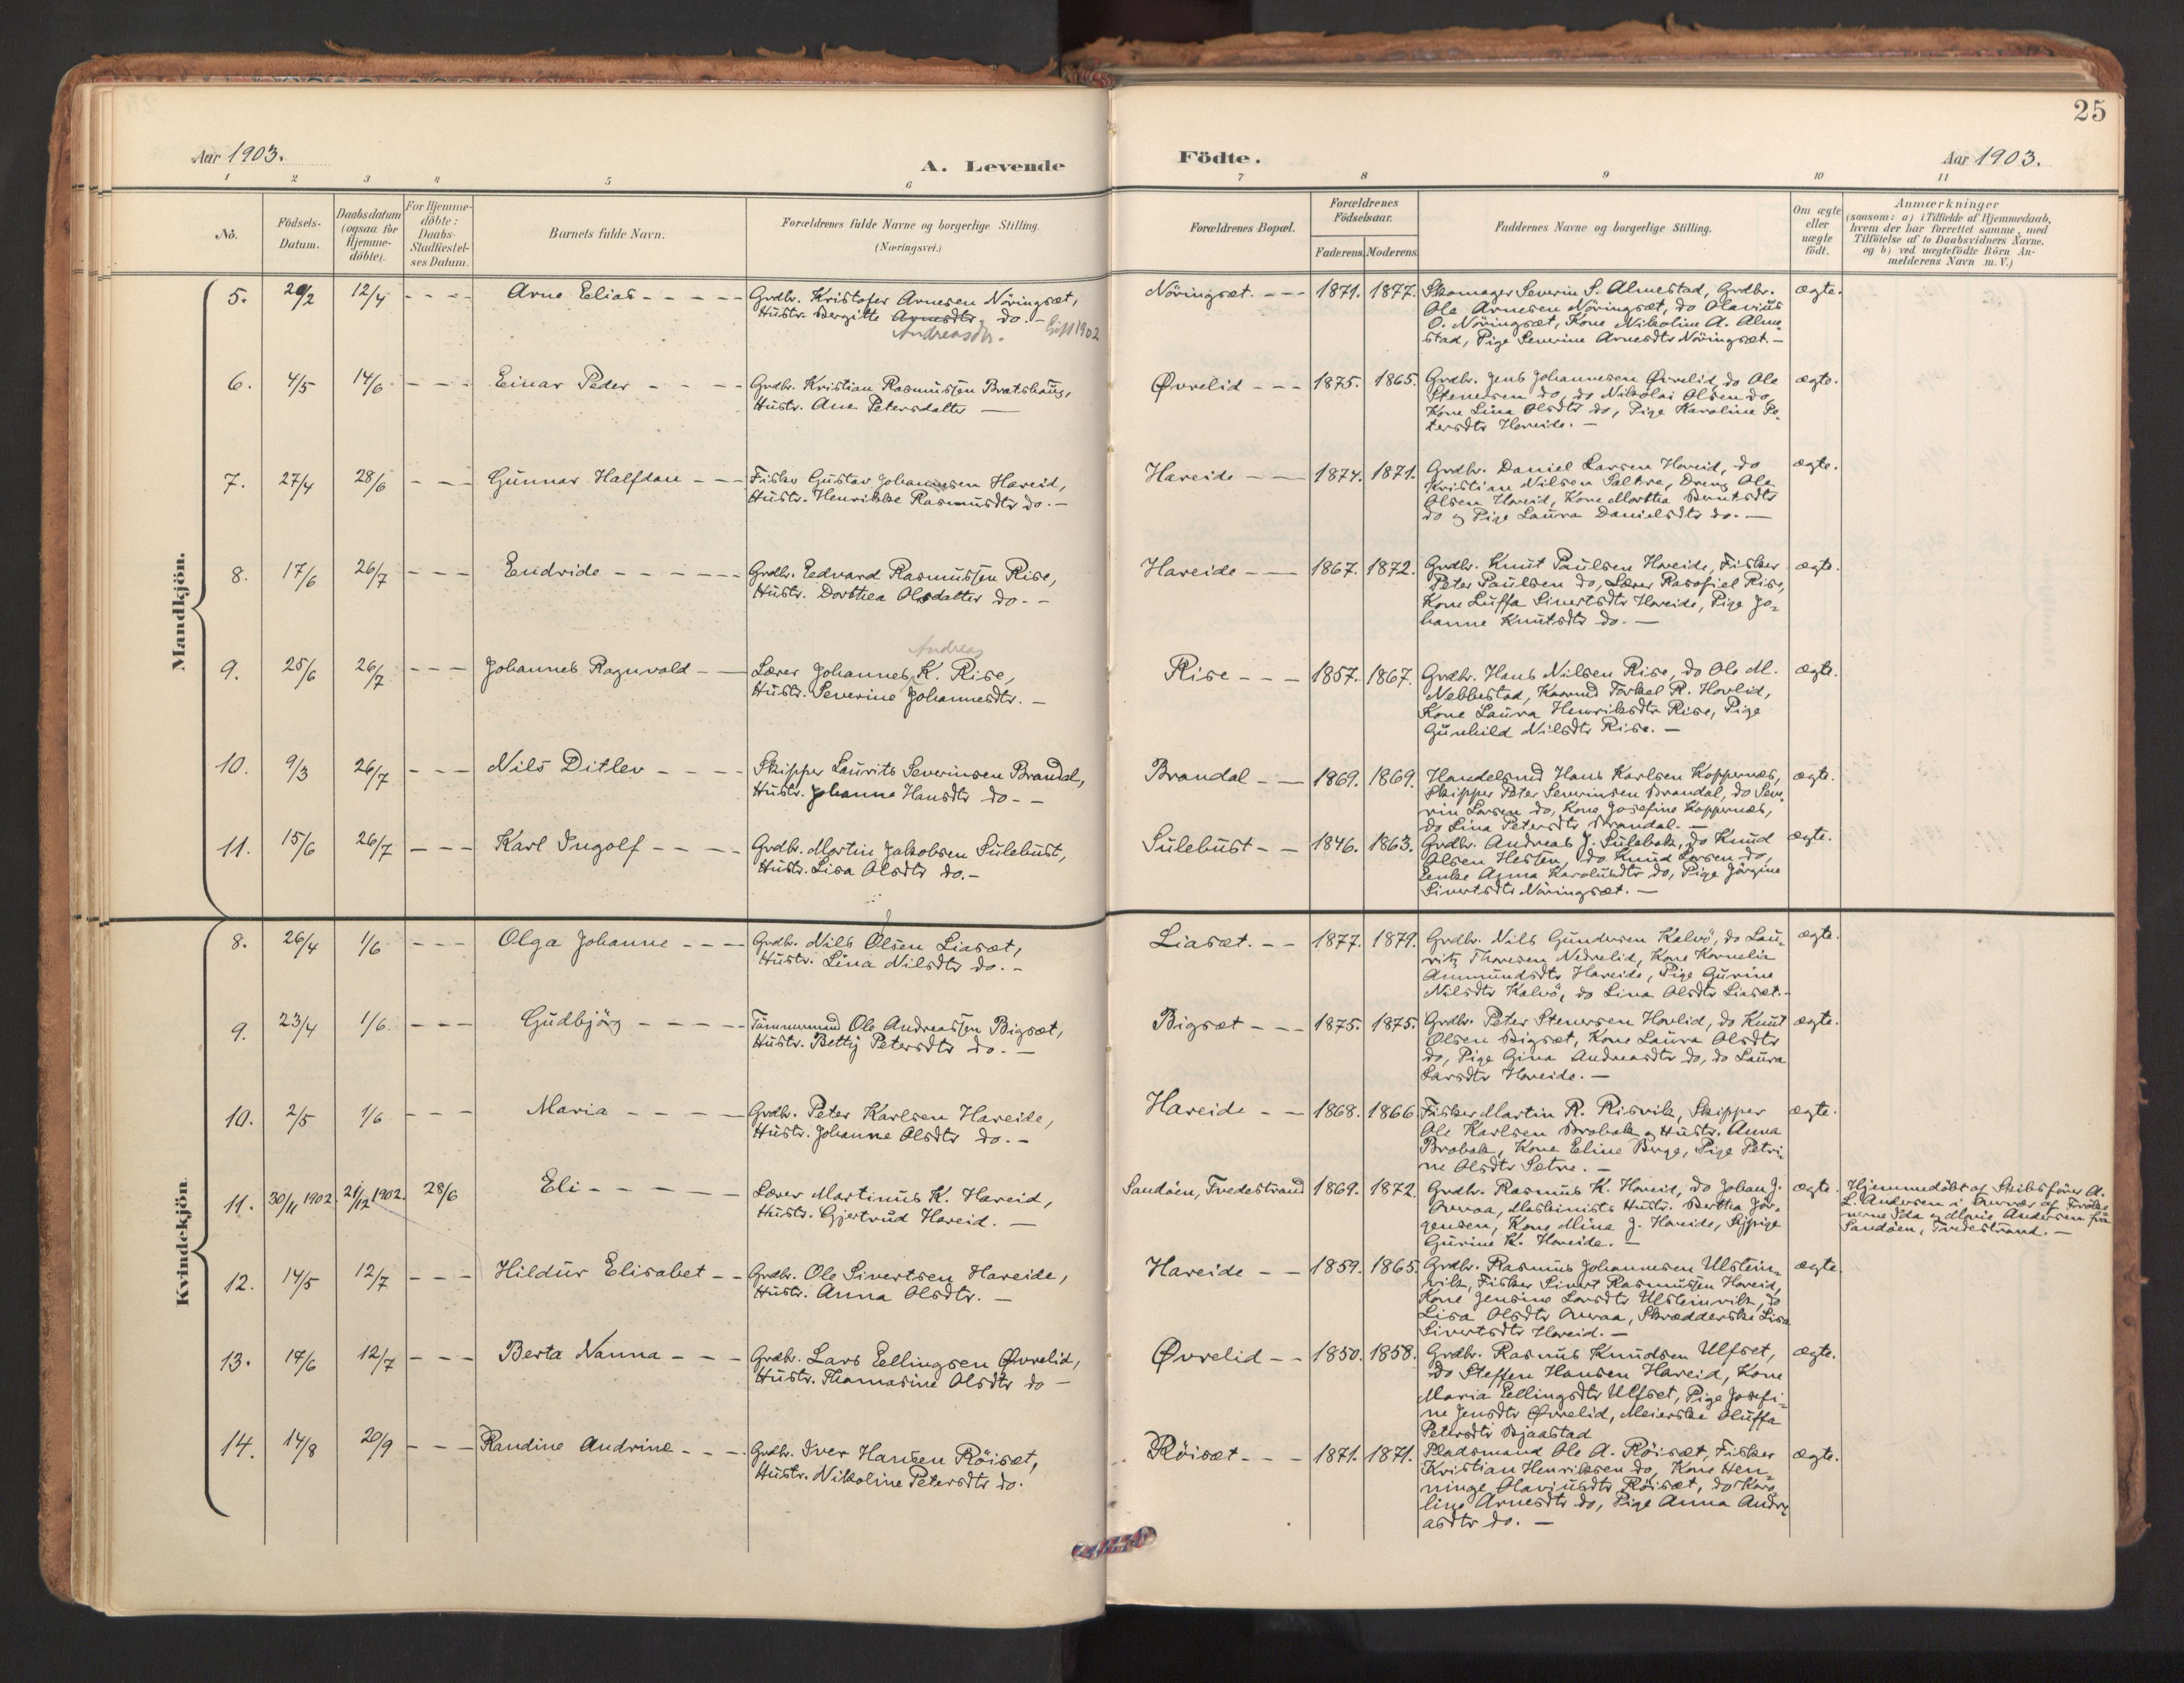 25
Aar 1903.
A. Levende
Födte.
Aar 1903.
1 2 3 4 5 6 7 8 9 10 11
No.
Födsels-
Datum.
Daabsdatum
(ogsaa for
Hjemme-
döbte).
For Hjemme-
döbte:
Daabs-
Stadfæstel-
ses Datum.
Barnets fulde Navn.
Forældrenes fulde Navne og borgerlige Stilling.
(Næringsvei.)
Forældrenes Bopæl.
Forældrenes
Födselsaar.
Faderens. Moderens.
Faddernes Navne og borgerlige Stilling.
Om ægte
eller
uægte
födt.
Anmærkninger
(saasom: a) i Tilfælde af Hjemmedaab,
hvem der har forrettet samme, med
Tilföielse af to Daabsvidners Navne.
og b) ved uægtefödte Börn An-
melderens Navn m. V.)
Mandkjön.
5. 20/2 12/4 - - - - Arne Elias - - - - - Grdbr. Kristofer Arnesen Nöringsæt,
Hustr. Bergitte Arnesdtr. do. - Gift 1902
Andreasdtr.
Nöringsæt. - - - 1871. 1877. Skomager Severin S. Almestad, Grdbr.
Ole Arnesen Nöringsæt, do Olavius
O. Nöringsæt, Kone Nikoline A. Alme-
stad, Pige Severine Arnesdtr Nöringsæt. -
ægte.
6. 4/5 14/6 - - - Einar Peder - - - - Grdbr. Kristian Rasmussen Bratshaug,
Hustr. Ane Petersdatter -
Øvrelid - - - 1875. 1865. Grdbr. Jens Johannesen Øvrelid, do Ole
Stenersen do, do Nikolai Olsen do,
Kone Lina Olsdtr do, Pige Karoline Pe-
tersdtr Hareide. -
ægte.
7. 27/4 28/6 - - - Gunnar Halfdan - - - Fisker Gustav Johannesen Hareid,
Hustr. Henrikke Rasmusdtr do. -
Hareide - - - 1874. 1871. Grdbr. Daniel Larsen Hareid, do
Kristian Nilsen Saltre, Dreng Ole
Olsen Hareid, Kone Martha Berntsdtr
do og Pige Laura Danielsdtr do. -
ægte.
8. 17/6 26/7 - - - Endride - - - - - - Grdbr. Edvard Rasmussen Rise,
Hustr. Dorthea Olsdatter do. -
Hareide - - - 1867. 1872. Grdbr. Knut Paulsen Hareide, Fisker
Peter Paulsen do, Lærer Rasofiel Rise,
Kone Luffa Sivertsdtr Hareide, Pige Jo-
hanne Knutsdtr do. -
ægte.
9. 25/6 26/7 - - - Johannes Ragnvald - - Lærer Johannes K. Rise,
Andreas
Hustr. Severine Johannesdtr. -
Rise - - - 1857. 1867. Grdbr. Hans Nilsen Rise, do Ole M.
Nebbestad, Torkel R. Hovlid,
Kone Laura Henriksdtr Rise, Pige
Gunhild Nilsdtr Rise. -
ægte.
10. 9/3 26/7 - - - Nils Ditlev - - - - Skipper Laurits Severinsen Brandal,
Hustr. Johanne Hansdtr do - -
Brandal - - - 1869. 1869. Handelsmd Hans Karlsen Koppernæs,
Skipper Peter Severinsen Brandal, do Seve-
rin Larsen do, Kone Josefine Koppernæs,
do Lina Petersdtr Brandal. -
ægte.
11. 15/6 26/7 - - - Karl Ingolf - - - - Grdbr. Martin Jakobsen Sulebust,
Hustr. Lisa Olsdtr do. -
Sulebust - - 1846. 1863. Grdbr. Andreas J. Sulebak, do Knud
Olsen Hessen, do Knud Larsen do,
Enke Anna Karolusdtr do, Pige Jörgine
Sivertsdtr Nöringsæt. -
ægte.
Kvindekjön.
8. 26/4 1/6 - - - Olga Johanne - - - Grdbr. Nils Olsen Liasæt,
Hustr. Lina Nilsdtr do. -
Liasæt. - - 1877. 1879. Grdbr. Nils Gundersen Kalvö, do Lau-
ritz Thoresen Nedrelid, Kone Kornelia
Ammundsdtr Hareide, Pige Gurine
Nilsdtr Kalvö, do Lina Olsdtr Liasæt. -
ægte.
9. 23/4 1/6. - - - Gudbjörg - - - - - Tömmermd Ole Andreassen Bigsæt,
Hustr. Betty Petersdtr do. -
Bigsæt - - - 1875. 1875. Grdbr. Peter Stenersen Hovlid, do Knut
Olsen Bigsæt, Kone Laura Olsdtr
do, Pige Gina Andreasdtr do, do Laura
Larsdtr Hareide. -
ægte.
10. 2/5 1/6 - - - Maria - - - - - Grdbr. Peter Karlsen Hareide,
Hustr. Johanne Olsdtr do. -
Hareide - - 1868. 1866 Fisker Martin R. Risvik, Skipper
Ole Karlsen Brobak og Hustr. Anna
Brobak, Kone Eline Berge, Pige Petri-
ne Olsdtr Sætre. -
ægte.
11. 30/11 1902. 21/12 1902. 28/6 Eli - - - - - Lærer Martinus K. Hareid,
Hustr. Gjertrud Hareid. -
Sandöen, Tvedestrand 1869. 1872. Grdbr. Rasmus K. Hareid, do Johan J.
Overaa, Maskinists Hustr. Bertha Jör-
gensen, Kone Mina J. Hareide, Pige
Gurine K. Hareide. -
ægte. Hjemmedöbt af Skibsförer A.
L. Andersen i Nærvær af Fröke-
nerne Ida og Marie Andersen fra
Sandöen, Tvedestrand. -
12. 14/5 12/7 - - - Hildur Elisabet - - Grdbr. Ole Sivertsen Hareide,
Hustr. Anna Olsdtr. -
Hareide - - 1859. 1865. Grdbr. Rasmus Johannesen Ulstein-
vik, Fisker Sivert Rasmussen Hareid,
Kone Jensine Larsdtr Ulsteinvik, do
Lisa Olsdtr Overaa, Skrædderske Lisa
Sivertsdtr Hareid. -
ægte.
13. 17/6 12/7 - - - Berta Nanna - - - Grdbr. Lars Eellingsen Øvrelid,
Hustr. Thomasine Olsdtr do -
Øvrelid - - 1850. 1858. Grdbr. Rasmus Knudsen Ulfset,
do Steffen Hansen Hareid, Kone
Maria Eellingsdtr Ulfset, Pige Josefi-
ne Jensdtr Øvrelid, Meierske Oluffa
Petersdtr Bjaastad
ægte.
14. 14/8 20/9 - - - Randine Andrine - - - Grdbr. Iver Hansen Röisæt,
Hustr. Nikoline Petersdtr do.
Röisæt - - - 1871. 1871. Pladsmand Ole A. Röisæt, Fisker
Kristian Henriksen do, Kone Hen-
ninge Olaviusdtr Röisæt, do Karo-
line Arnesdtr do, Pige Anna Andre-
asdtr do. -
ægte.